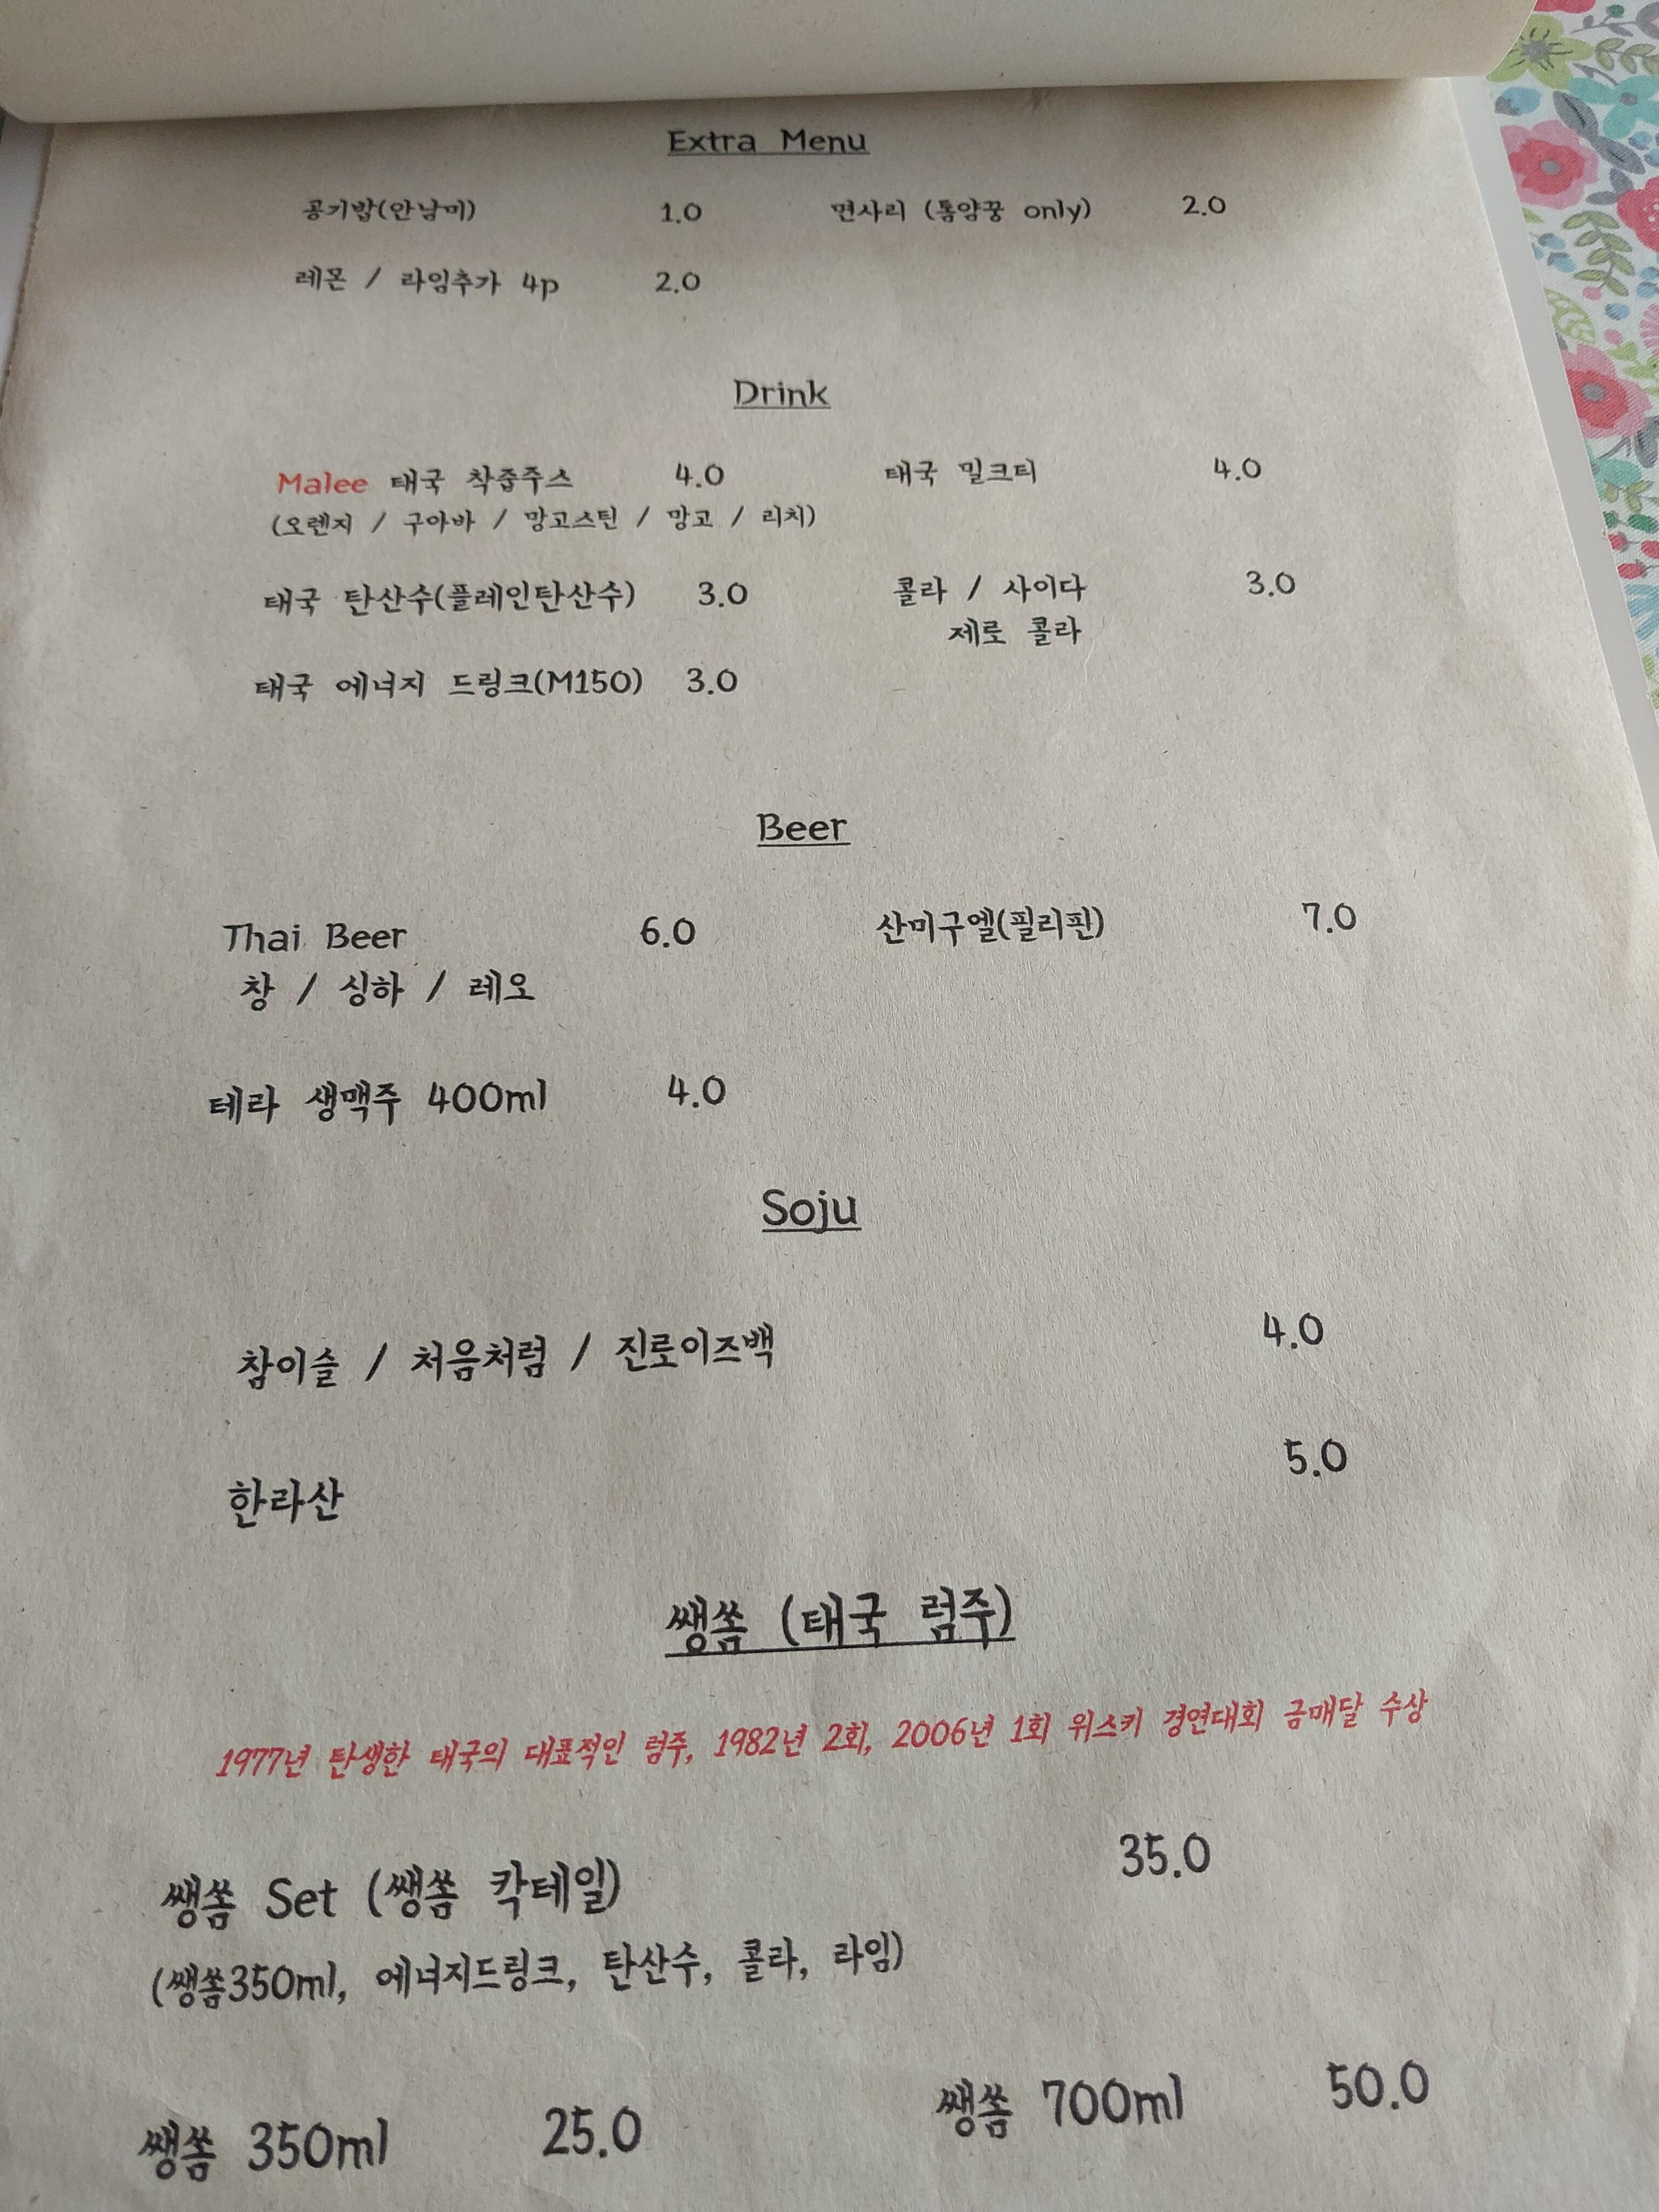 Extra Menu
공기밥(안남미) 1.0 면사리 (똠얌꿍 only) 2.0
레몬 / 라임추가 4p 2.0
Drink
Malee 태국 착즙주스 4.0 태국 밀크티 4.0
(오렌지 / 구아바 / 망고스틴 / 망고 / 리치)
태국 탄산수(플레인탄산수) 3.0 콜라 / 사이다 3.0
제로 콜라
태국 에너지 드링크(M150) 3.0
Beer
Thai Beer 6.0 산미구엘(필리핀) 7.0
창 / 싱하 / 레오
테라 생맥주 400ml 4.0
Soju
참이슬 / 처음처럼 / 진로이즈백 4.0
한라산 5.0
쌩쏨 (태국 럼주)
1977년 탄생한 태국의 대표적인 럼주, 1982년 2회, 2006년 1회 위스키 경연대회 금매달 수상
쌩쏨 Set (쌩쏨 칵테일) 35.0
(쌩쏨350ml, 에너지드링크, 탄산수, 콜라, 라임)
쌩쏨 350ml 25.0 쌩쏨 700ml 50.0